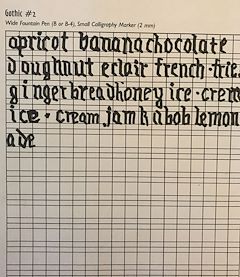 Gothic #2
Wide Fountain Pen (B or B-4), Small Calligraphy Marker (2 mm)
apricot banana chocolate
doughnut eclair french-frie
gingerbread honey ice-crem
ice-cream jam kabob lemon
ade